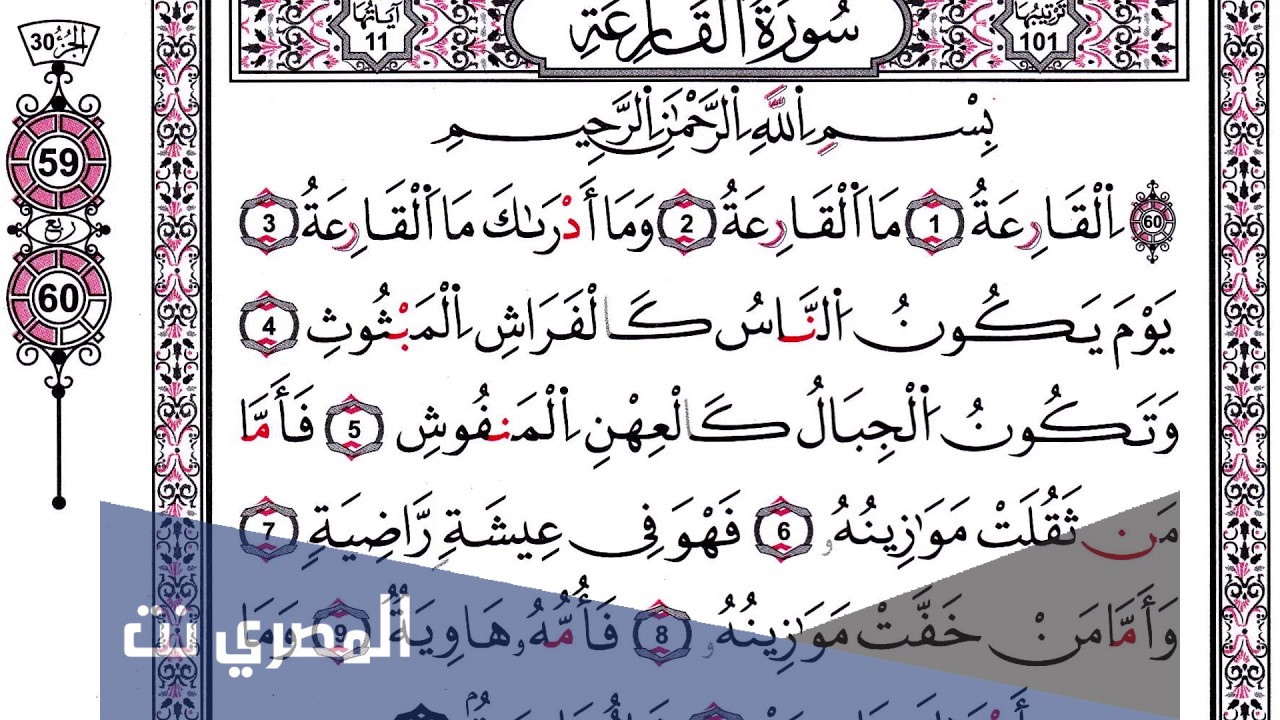 الجزء 30
59
ربع
60
ترتيبها 101
سُورَةُ الْقَارِعَةِ
آياتها 11
بِسْمِ اللَّهِ الرَّحْمَٰنِ الرَّحِيمِ
60 اِلْقَارِعَةُ 1 مَا اَلْقَارِعَةُ 2 وَمَا أَدْرَىٰكَ مَا اَلْقَارِعَةُ 3
يَوْمَ يَكُونُ اُلنَّاسُ كَالْفَرَاشِ اِلْمَبْثُوثِ 4
وَتَكُونُ اُلْجِبَالُ كَالْعِهْنِ اِلْمَنفُوشِ 5 فَأَمَّا
مَن ثَقُلَتْ مَوَٰزِينُهُۥ 6 فَهْوَ فِى عِيشَةٍ رَّاضِيَةٍ 7
وَأَمَّا مَنْ خَفَّتْ مَوَٰزِينُهُۥ 8 فَأُمُّهُۥ هَاوِيَةٌ 9 وَمَا
المصري نت